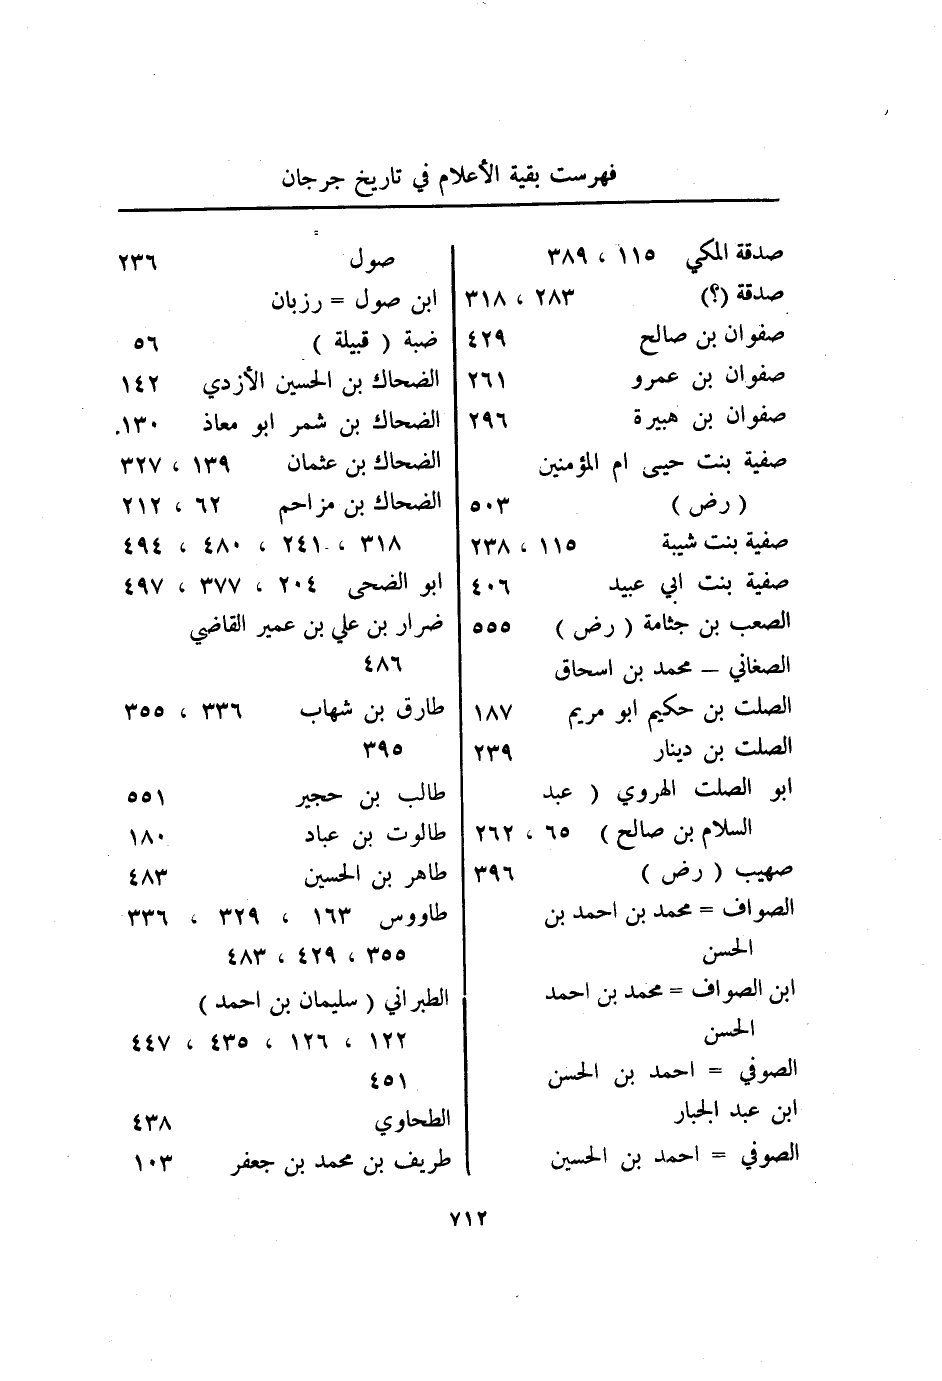 فهرست بقية الأعلام في تاريخ جرجان
صدقة المكي ١١٥ ، ٣٨٩
صدقة (؟) ٢٨٣ ، ٣١٨
صفوان بن صالح ٤٢٩
صفوان بن عمرو ٢٦١
صفوان بن هبيرة ٢٩٦
صفية بنت حيى ام المؤمنين
( رض ) ٥٠٣
صفية بنت شيبة ١١٥ ، ٢٣٨
صفية بنت ابي عبيد ٤٠٦
الصعب بن جثامة ( رض ) ٥٥٥
الصغاني – محمد بن اسحاق
الصلت بن حكيم ابو مريم ١٨٧
الصلت بن دينار ٢٣٩
ابو الصلت الهروي ( عبد
السلام بن صالح ) ٦٥ ، ٢٦٢
صهيب ( رض ) ٣٩٦
الصواف = محمد بن احمد بن
الحسن
ابن الصواف = محمد بن احمد
الحسن
الصوفي = احمد بن الحسن
ابن عبد الجبار
الصوفي = احمد بن الحسين
صول ٢٣٦
ابن صول = رزبان
ضبة ( قبيلة ) ٥٦
الضحاك بن الحسين الأزدي ١٤٢
الضحاك بن شمر ابو معاذ ١٣٠.
الضحاك بن عثمان ١٣٩ ، ٣٢٧
الضحاك بن مزاحم ٦٢ ، ٢١٢
٣١٨ ، ٢٤١ ، ٤٨٠ ، ٤٩٤
ابو الضحى ٢٠٤ ، ٣٧٧ ، ٤٩٧
ضرار بن علي بن عمير القاضي
٤٨٦
طارق بن شهاب ٣٣٦ ، ٣٥٥
٣٩٥
طالب بن حجير ٥٥١
طالوت بن عباد ١٨٠
طاهر بن الحسين ٤٨٣
طاووس ١٦٣ ، ٣٢٩ ، ٣٣٦
٣٥٥ ، ٤٢٩ ، ٤٨٣
الطبراني ( سليمان بن احمد )
١٢٢ ، ١٢٦ ، ٤٣٥ ، ٤٤٧
٤٥١
الطحاوي ٤٣٨
طريف بن محمد بن جعفر ١٠٣
٧١٢